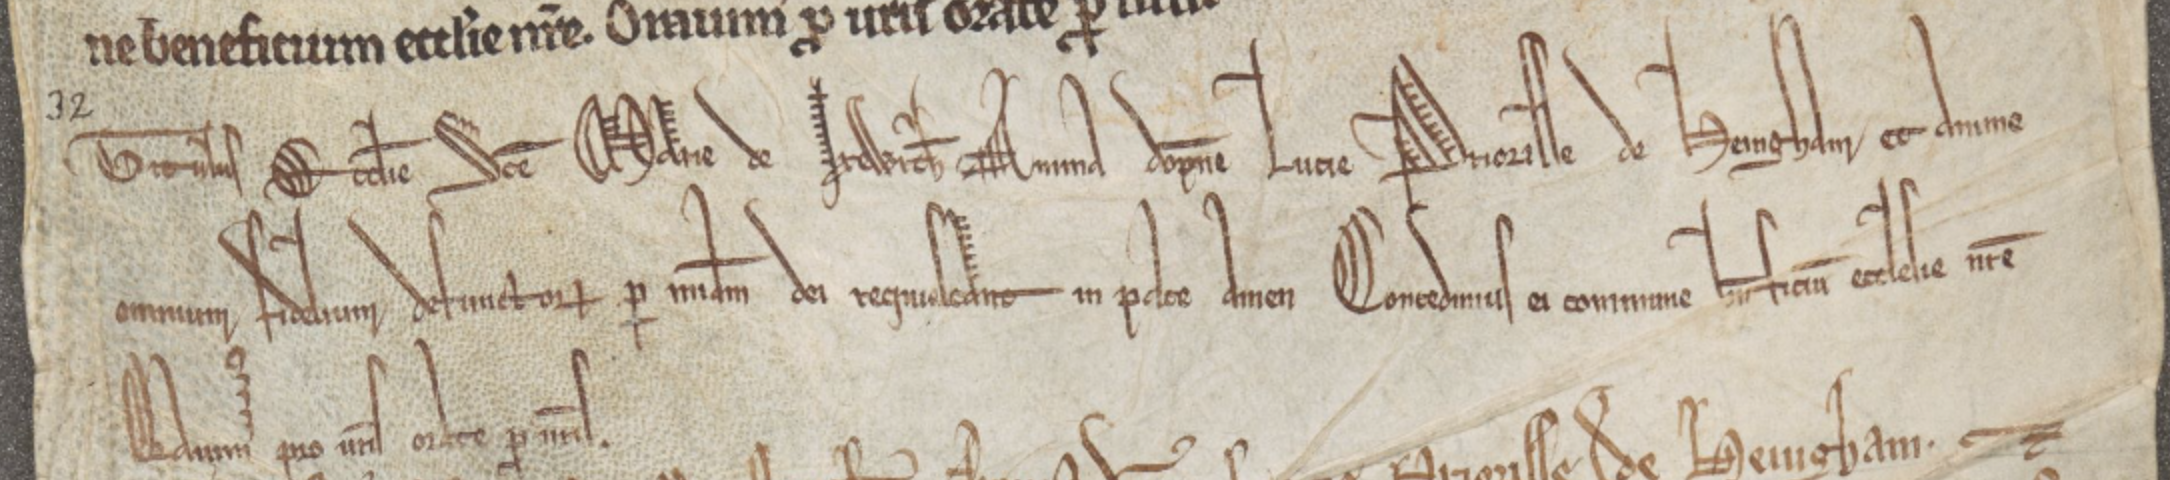 ne beneficium eccłie nr̃e. Omnium p̱ uris orate p̱
32
Titulus Ecclie Scẽ Marie de Anima dopne Lucie Priorisse de Heingham et anime
omnium fidelium defunctoꝝ p̱ miam̃ dei requiescant in pace amen Concedimus ei commune bñficiũ ecclesie nr̃e
Oramus pro uris̃ orate p̱ nris̃.
Priorisse de Heingham.